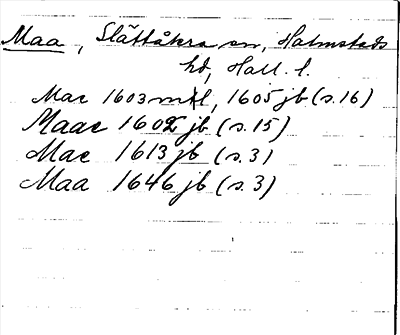 Maa, Slättåkra sn, Halmstads
hd, Hall. l.
Mae 1603 mtl, 1605 jb (s. 16)
Maae 1602 jb (s. 15)
Mae 1613 jb (s. 3)
Maa 1646 jb (s. 3)